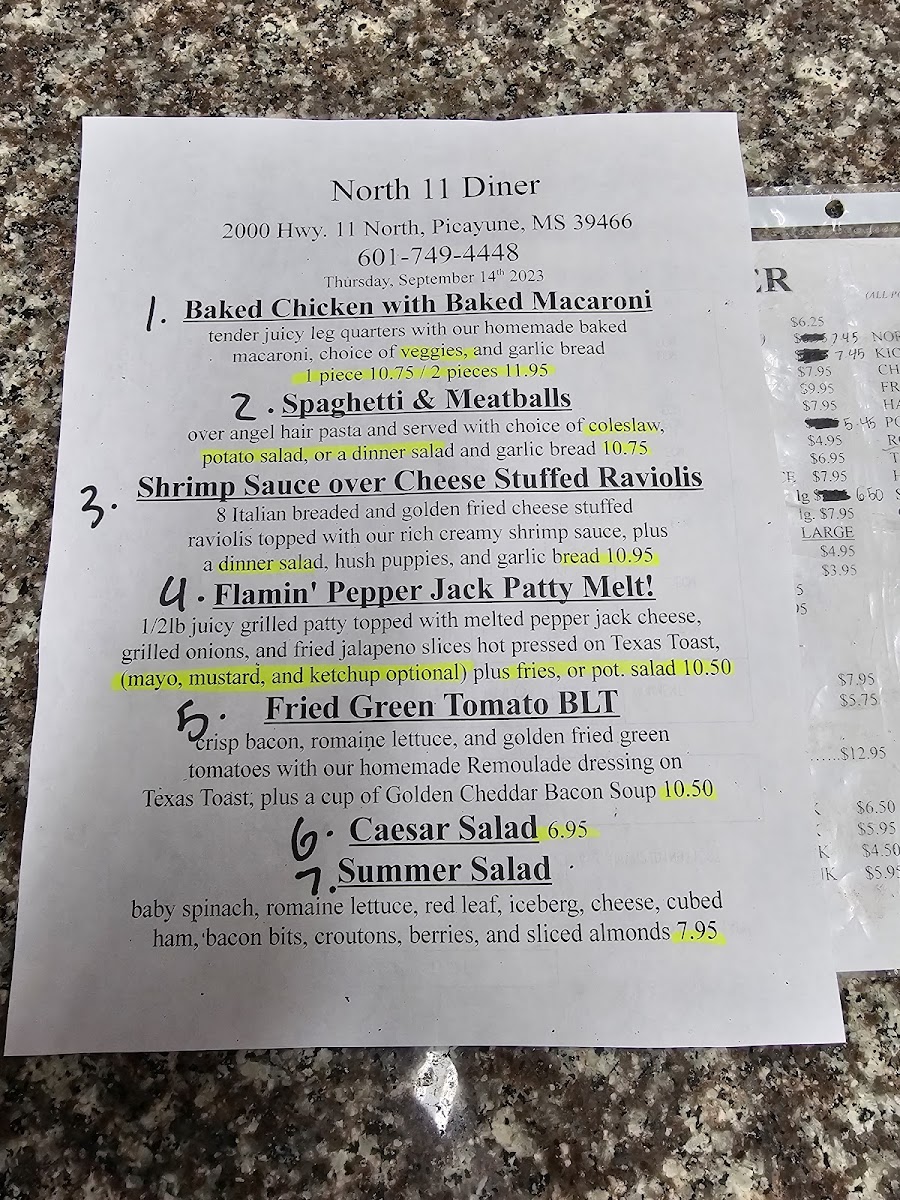 North 11 Diner
2000 Hwy. 11 North, Picayune, MS 39466
601-749-4448
Thursday, September 14th 2023
1. Baked Chicken with Baked Macaroni
tender juicy leg quarters with our homemade baked
macaroni, choice of veggies, and garlic bread
1 piece 10.75 / 2 pieces 11.95
2. Spaghetti & Meatballs
over angel hair pasta and served with choice of coleslaw,
potato salad, or a dinner salad and garlic bread 10.75
3. Shrimp Sauce over Cheese Stuffed Raviolis
8 Italian breaded and golden fried cheese stuffed
raviolis topped with our rich creamy shrimp sauce, plus
a dinner salad, hush puppies, and garlic bread 10.95
4. Flamin' Pepper Jack Patty Melt!
1/2lb juicy grilled patty topped with melted pepper jack cheese,
grilled onions, and fried jalapeno slices hot pressed on Texas Toast,
(mayo, mustard, and ketchup optional) plus fries, or pot. salad 10.50
5. Fried Green Tomato BLT
crisp bacon, romaine lettuce, and golden fried green
tomatoes with our homemade Remoulade dressing on
Texas Toast, plus a cup of Golden Cheddar Bacon Soup 10.50
6. Caesar Salad 6.95
7. Summer Salad
baby spinach, romaine lettuce, red leaf, iceberg, cheese, cubed
ham, bacon bits, croutons, berries, and sliced almonds 7.95
ER
(ALL PO
$6.25
7.45 NOR
7.45 KIC
$7.95 CH
$9.95 FR
$7.95 HA
5.45 PO
$4.95
$6.95
$7.95
lg 6.50
lg. $7.95
LARGE
$4.95
$3.95
$7.95
$5.75
$12.95
$6.50
$5.95
K $4.50
IK $5.95